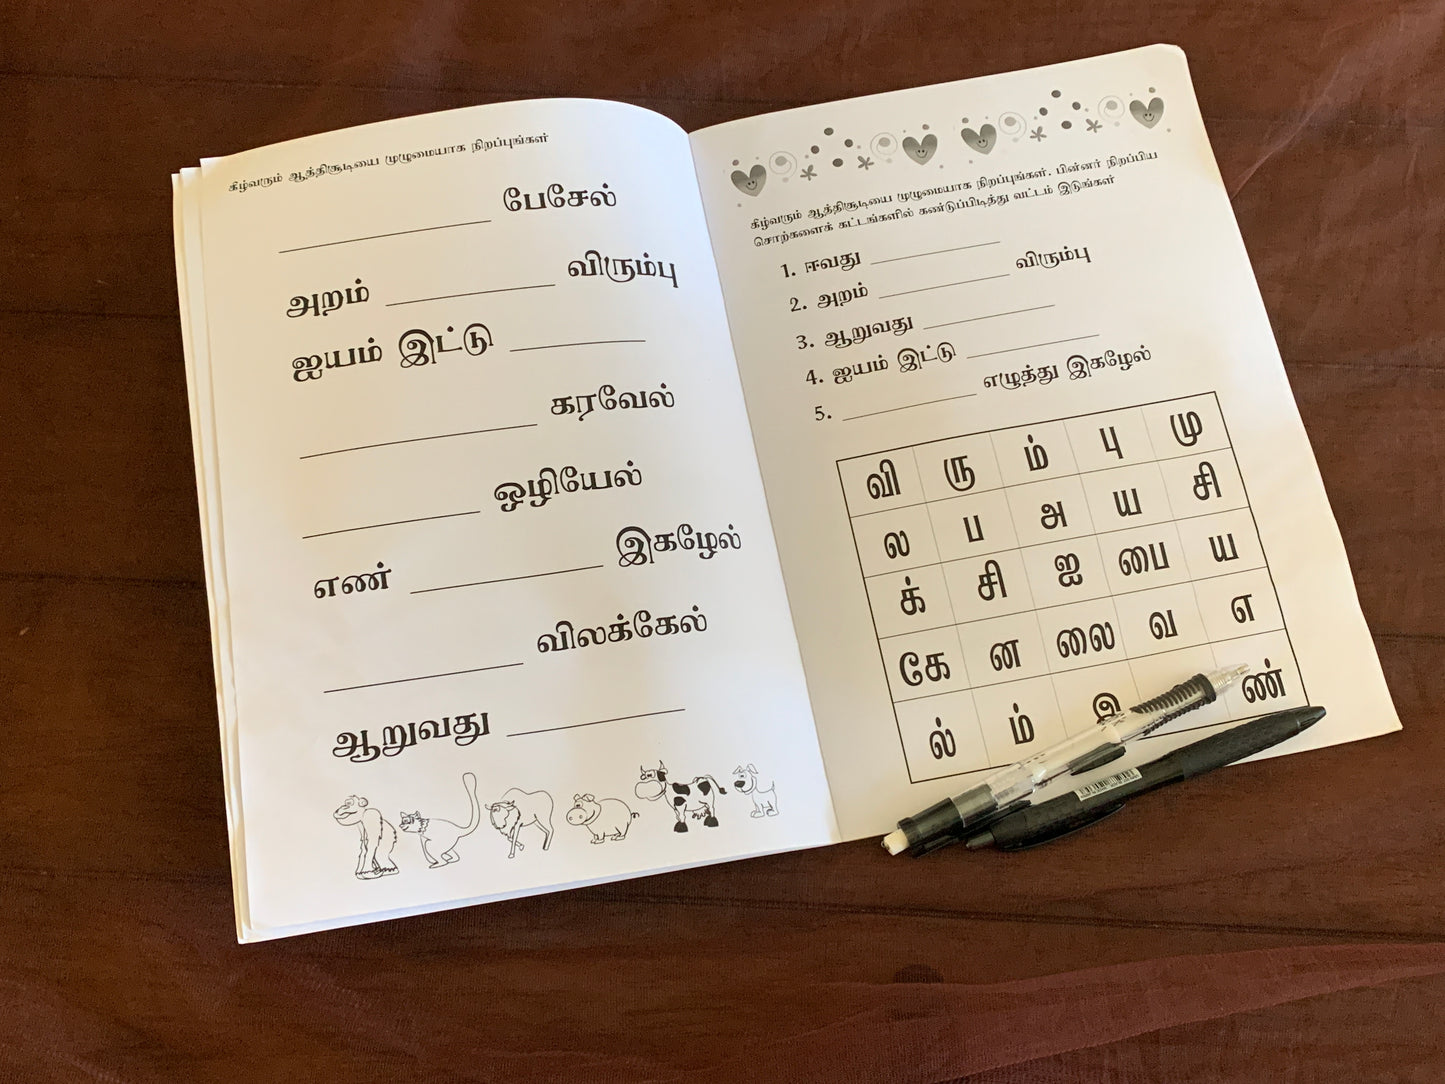 கீழ்வரும் ஆத்திசூடியை முழுமையாக நிறப்புங்கள்
பேசேல்
அறம் விரும்பு
ஐயம் இட்டு
கரவேல்
ஒழியேல்
எண் இகழேல்
விலக்கேல்
ஆறுவது
கீழ்வரும் ஆத்திசூடியை முழுமையாக நிறப்புங்கள். பின்னர் நிறப்பிய
சொற்களைக் கட்டங்களில் கண்டுப்பிடித்து வட்டம் இடுங்கள்
1. ஈவது
2. அறம் விரும்பு
3. ஆறுவது
4. ஐயம் இட்டு
5. எழுத்து இகழேல்
வி ரு ம் பு மு
ல ப அ ய சி
க் சி ஐ பை ய
கே ன லை வ எ
ல் ம் இ ண்